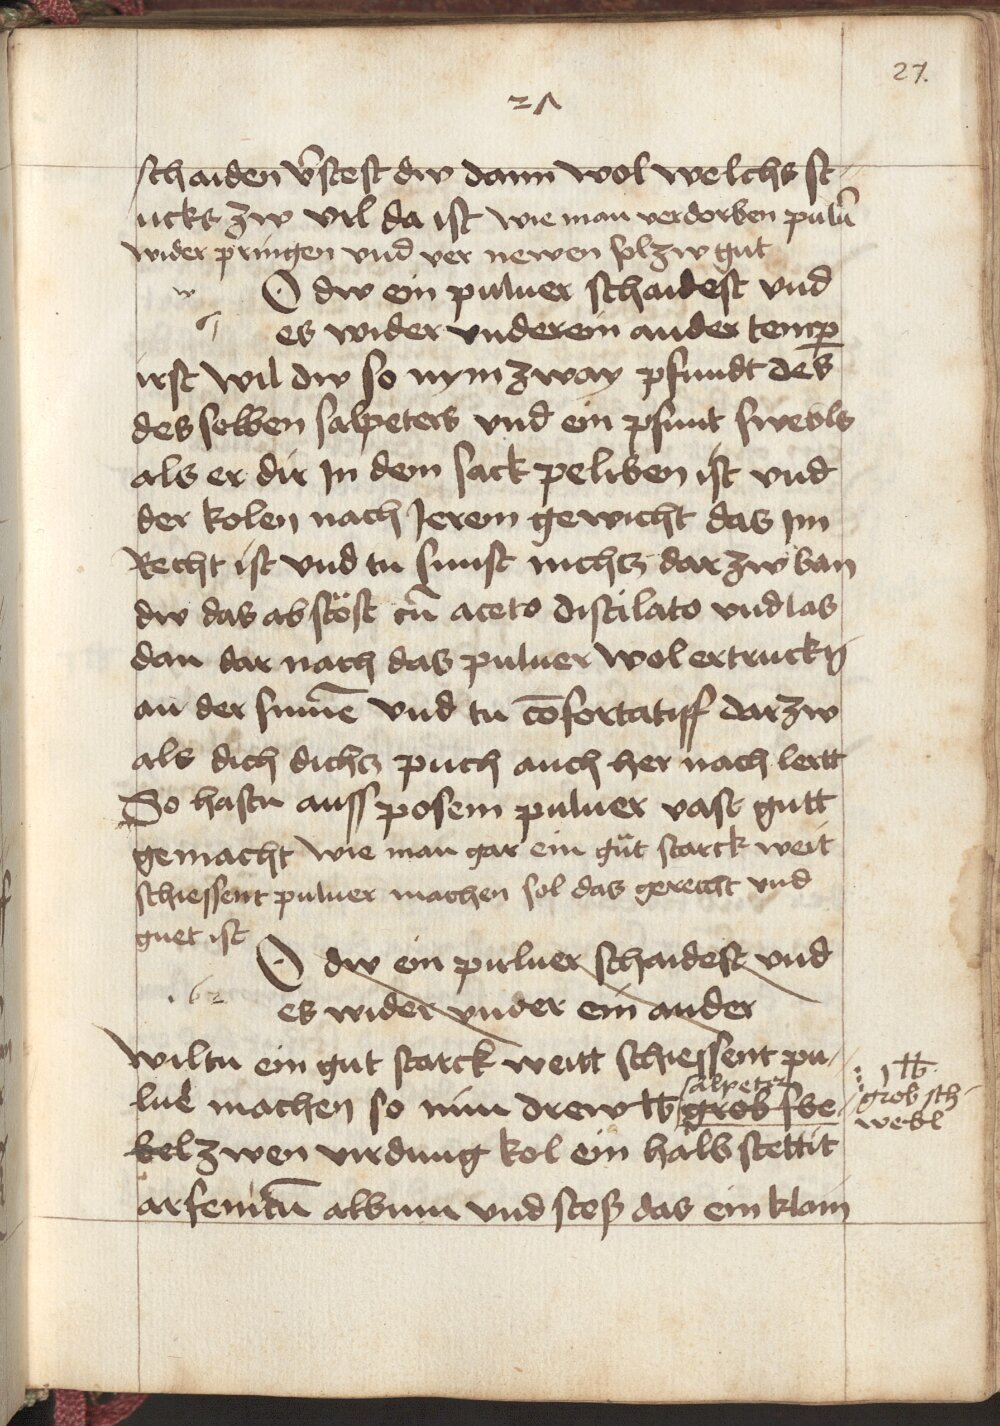 27.
27
schaiden v̄stest dw dann wol welchs st
ucks zw vil da ist wie man verdorben pulū
wider pringen vnd ver newen sol zw gut
w O dw ein puluer schaidest vnd
es wider vnderein ander temp
irst wil dw so nym zway pfundt des
des selben salpeters vnd ein pfunt swebls
als er dir In dem sack peliben ist vnd
der kolen nach Jerem gewicht das Im
Recht ist vnd tu sunst nichcz dar zw ban
dw das ab stöst cū aceto distilato vnd las
dan dar nach das puluer wol ertruckn
an der sunnē vnd tu cōfortatiff dar zw
als dich dichcz puch auch her nach lertt
So hastu auss posem puluer vast gutt
gemacht wie man gar ein güt starck weit
schiessent puluer machen sol das gerecht vnd
guet ist
O dw ein purluer schaidest vnd
es wider vnder ein ander
wiltu ein gut starck weitt schiessent pu
luer machen so nim drew lb grob swe
salpeter
bel zwen virdung kol ein halb stettit
arsenicū album vnd stos das ein klain
1 lb
grob sch
webl